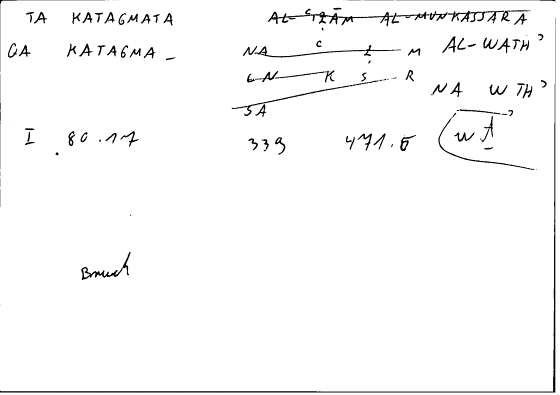 TA KATAGMATA AL-ʿIẒĀM AL-MUNKASSARA
GA KATAGMA – NA C Ẓ M AL-WATHʾ
GN K S R NA W TH ʾ
SA
I 80.17 339 471.5 WṮʾ
Bruch